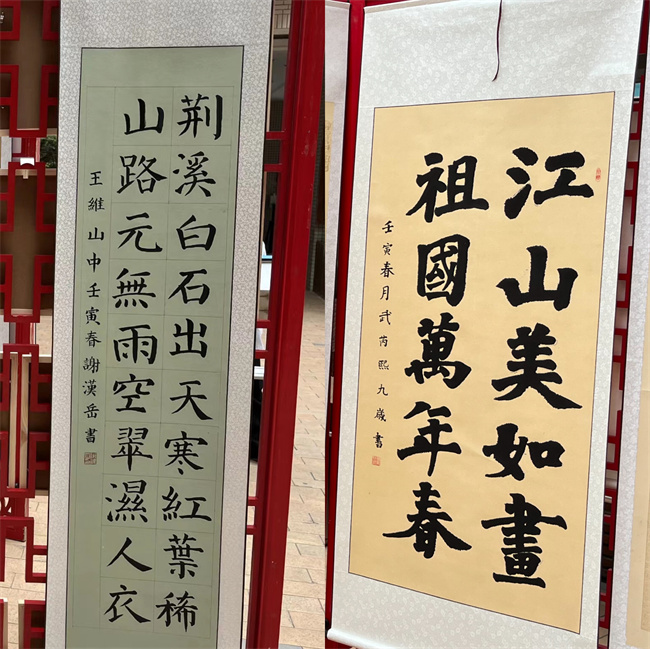 荆溪白石出天寒紅葉稀
山路元無雨空翠濕人衣
王維山中壬寅春謝漢岳書
江山美如畫
祖國萬年春
壬寅春月武芮熙九歲書